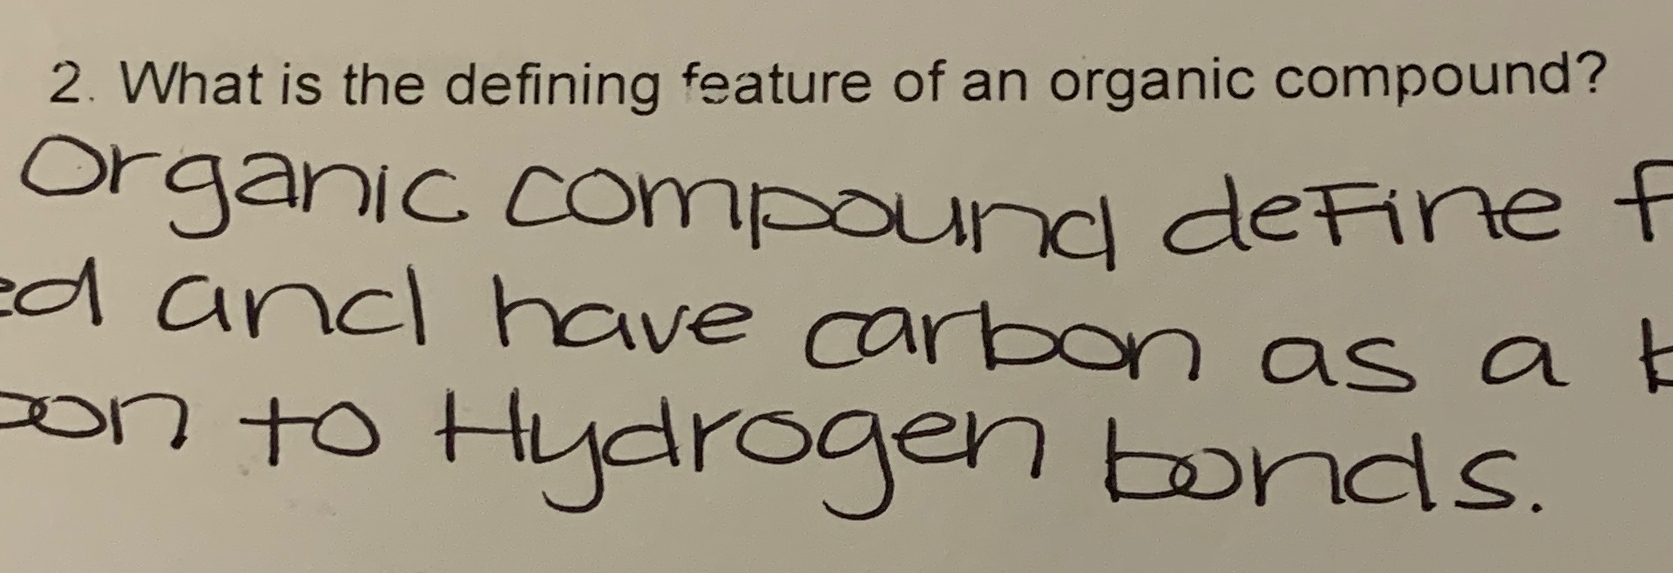 2. What is the defining feature of an organic compound?
Organic compound define f
ed and have carbon as a b
bon to Hydrogen bonds.